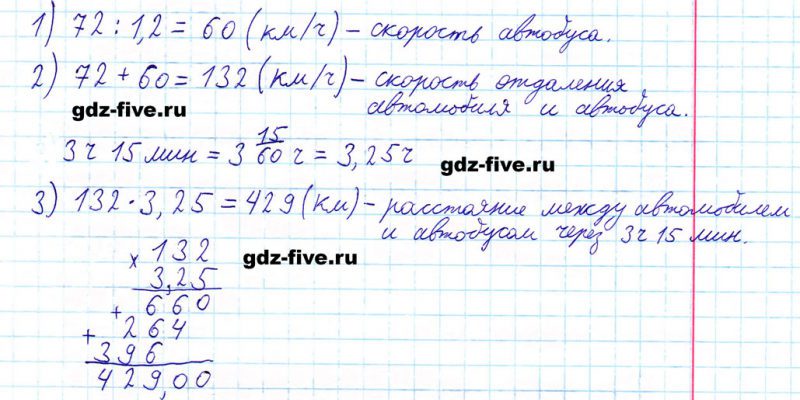 1) 72 : 1,2 = 60 (км/ч) – скорость автобуса.
2) 72 + 60 = 132 (км/ч) – скорость отдаления
gdz-five.ru
автомобиля и автобуса.
3 ч 15 мин = 3 15/60 ч = 3,25 ч
gdz-five.ru
3) 132 · 3,25 = 429 (км) – расстояние между автомобилем
и автобусом через 3 ч 15 мин.
gdz-five.ru
× 132
3,25
+ 660
+ 264
396
429,00